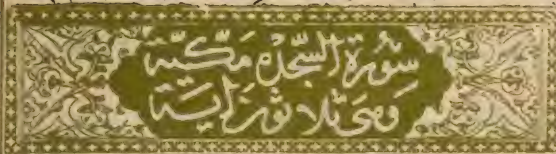 سورة السجدة مكية
وهى ثلاثون اية